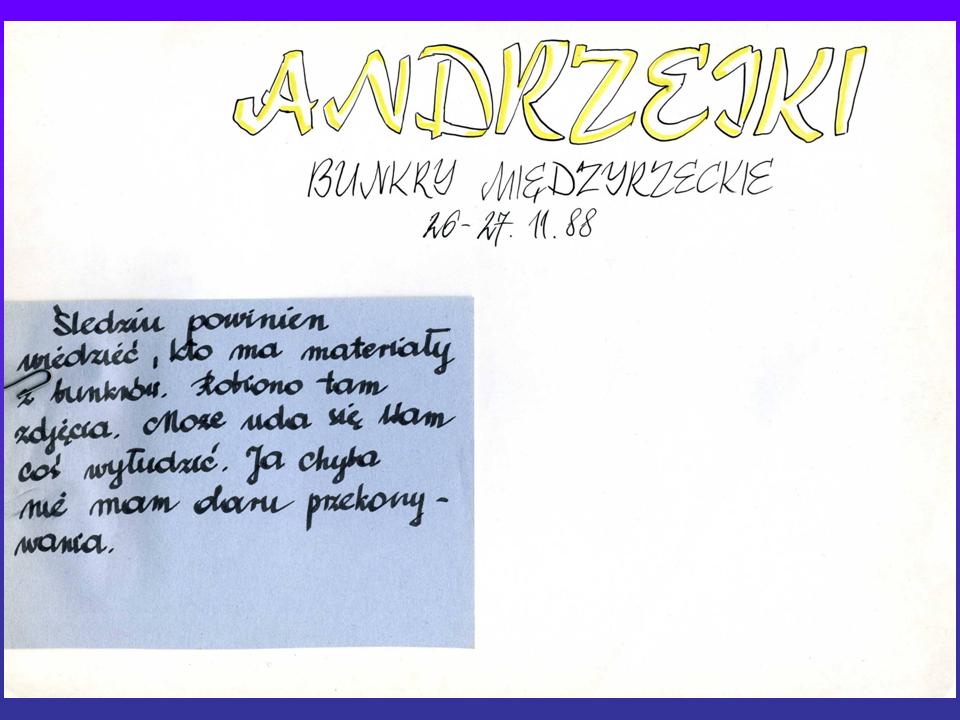 ANDRZEJKI
BUNKRY MIĘDZYRZECKIE
26-27.11.88
Śledziu powinien
wiedzieć, kto ma materiały
z bunkrów. Robiono tam
zdjęcia. Może uda się Wam
coś wyłudzić. Ja chyba
nie mam daru przekony-
wania.